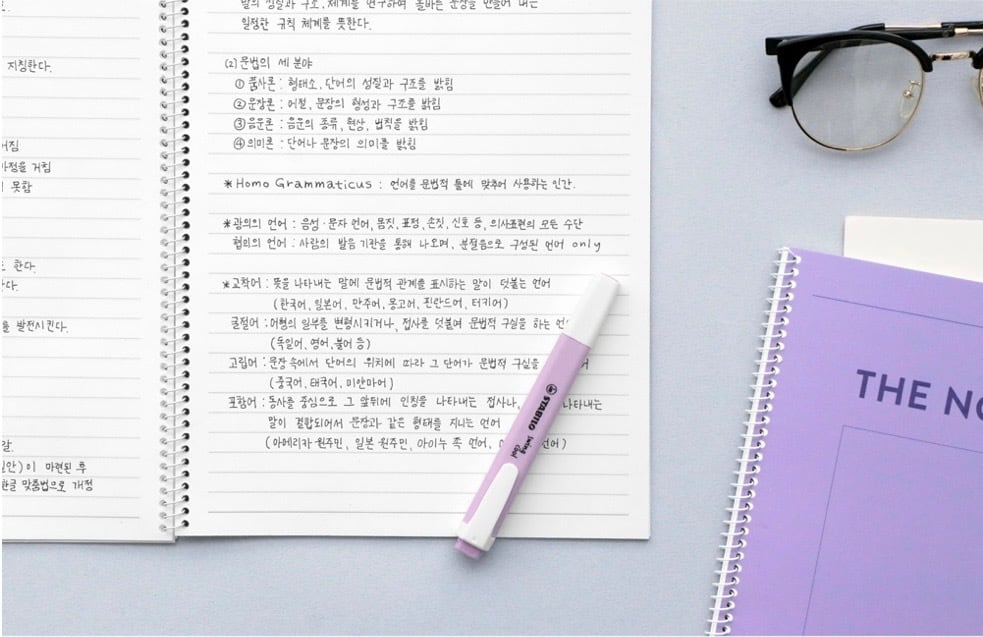 지칭한다.
거침
과정을 거침
못함
한다.
한다.
를 발전시킨다.
이 마련된 후
한글 맞춤법으로 개정
말의 성질과 구조, 체계를 연구하여 올바른 문장을 만들어 내는
일정한 규칙 체계를 뜻한다.
(2) 문법의 세 분야
① 품사론 : 형태소, 단어의 성질과 구조를 밝힘
② 문장론 : 어절, 문장의 형성과 구조를 밝힘
③ 음운론 : 음운의 종류, 현상, 법칙을 밝힘
④ 의미론 : 단어나 문장의 의미를 밝힘
* Homo Grammaticus : 언어를 문법적 틀에 맞추어 사용하는 인간.
* 광의의 언어 : 음성·문자 언어, 몸짓, 표정, 손짓, 신호 등, 의사표현의 모든 수단
협의의 언어 : 사람의 발음 기관을 통해 나오며, 분절음으로 구성된 언어 only
* 교착어 : 뜻을 나타내는 말에 문법적 관계를 표시하는 말이 덧붙는 언어
(한국어, 일본어, 만주어, 몽고어, 핀란드어, 터키어)
굴절어 : 어형의 일부를 변형시키거나, 접사를 덧붙여 문법적 구실을 하는
(독일어, 영어, 불어 등)
고립어 : 문장 속에서 단어의 위치에 따라 그 단어가 문법적 구실을
(중국어, 태국어, 미얀마어)
포함어 : 동사를 중심으로 그 앞뒤에 인칭을 나타내는 접사나, 나타내는
말이 결합되어서 문장과 같은 형태를 지니는 언어
(아메리카 원주민, 일본 원주민, 아이누 족 언어, 언어)
STABILO
swing cool
THE NO